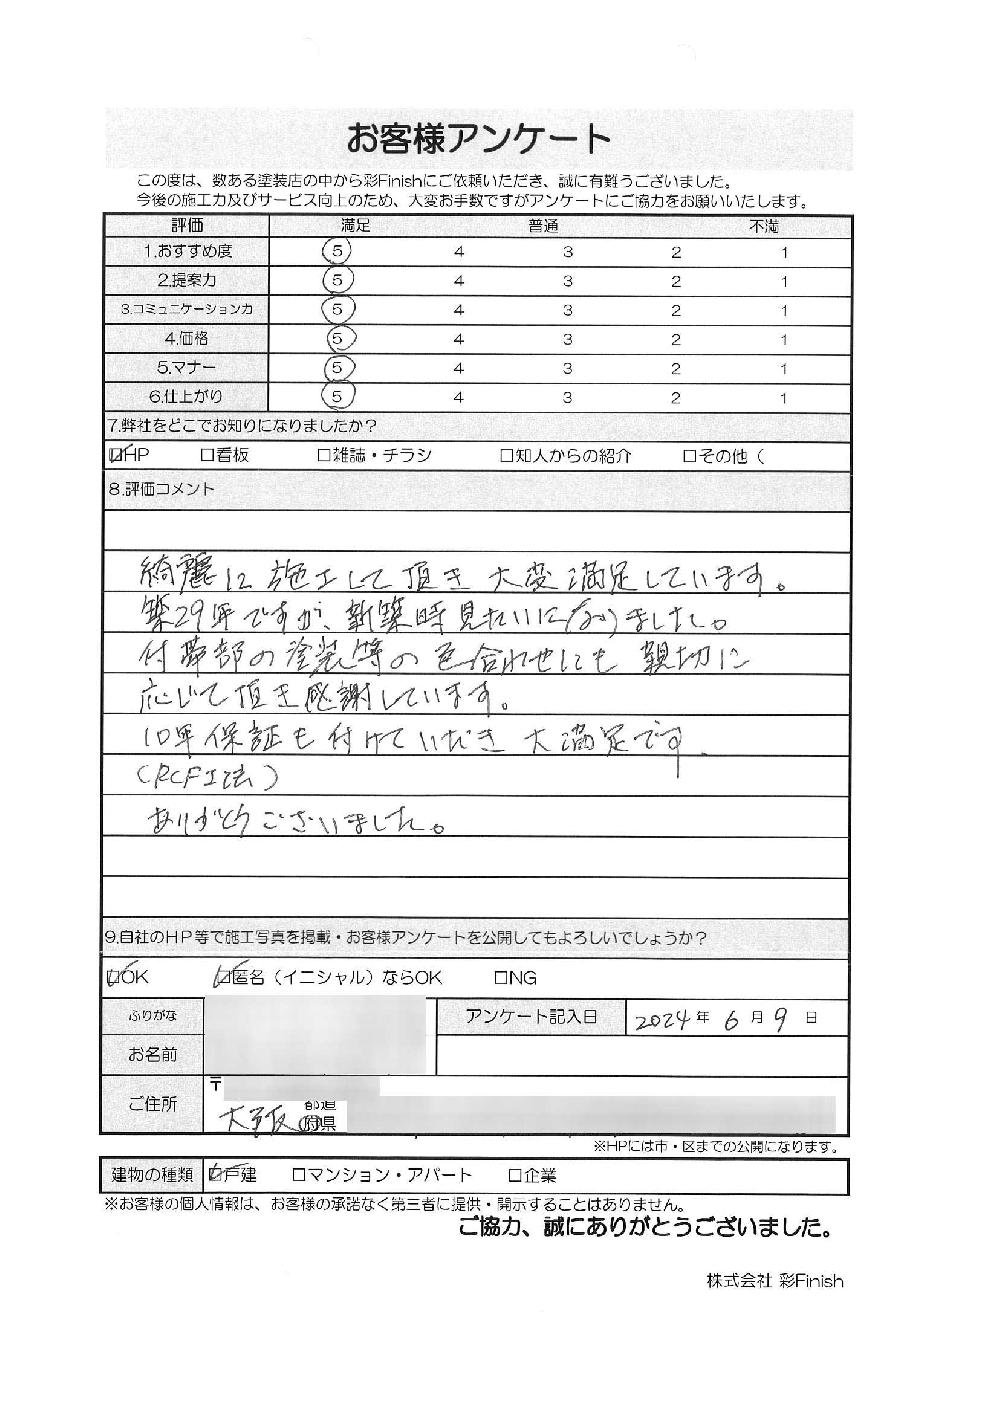 お客様アンケート
この度は、数ある塗装店の中から彩Finishにご依頼いただき、誠に有難うございました。
今後の施工力及びサービス向上のため、大変お手数ですがアンケートにご協力をお願いいたします。
評価 満足 普通 不満
1.おすすめ度 5 4 3 2 1
2.提案力 5 4 3 2 1
3.コミュニケーション力 5 4 3 2 1
4.価格 5 4 3 2 1
5.マナー 5 4 3 2 1
6.仕上がり 5 4 3 2 1
7.弊社をどこでお知りになりましたか？
☑HP □看板 □雑誌・チラシ □知人からの紹介 □その他（
8.評価コメント
綺麗に施工して頂き大変満足しています。
築29年ですが、新築時見たいになりました。
付帯部の塗装等の色合わせにも親切に
応じて頂き感謝しています。
10年保証も付けていただき大満足です.
(RCF工法)
ありがとうございました。
9.自社のHP等で施工写真を掲載・お客様アンケートを公開してもよろしいでしょうか？
☑OK ☑匿名（イニシャル）ならOK □NG
ふりがな アンケート記入日 2024年 6月 9日
お名前
〒
ご住所 大阪 都道府県
※HPには市・区までの公開になります。
建物の種類 ☑戸建 □マンション・アパート □企業
※お客様の個人情報は、お客様の承諾なく第三者に提供・開示することはありません。
ご協力、誠にありがとうございました。
株式会社 彩Finish